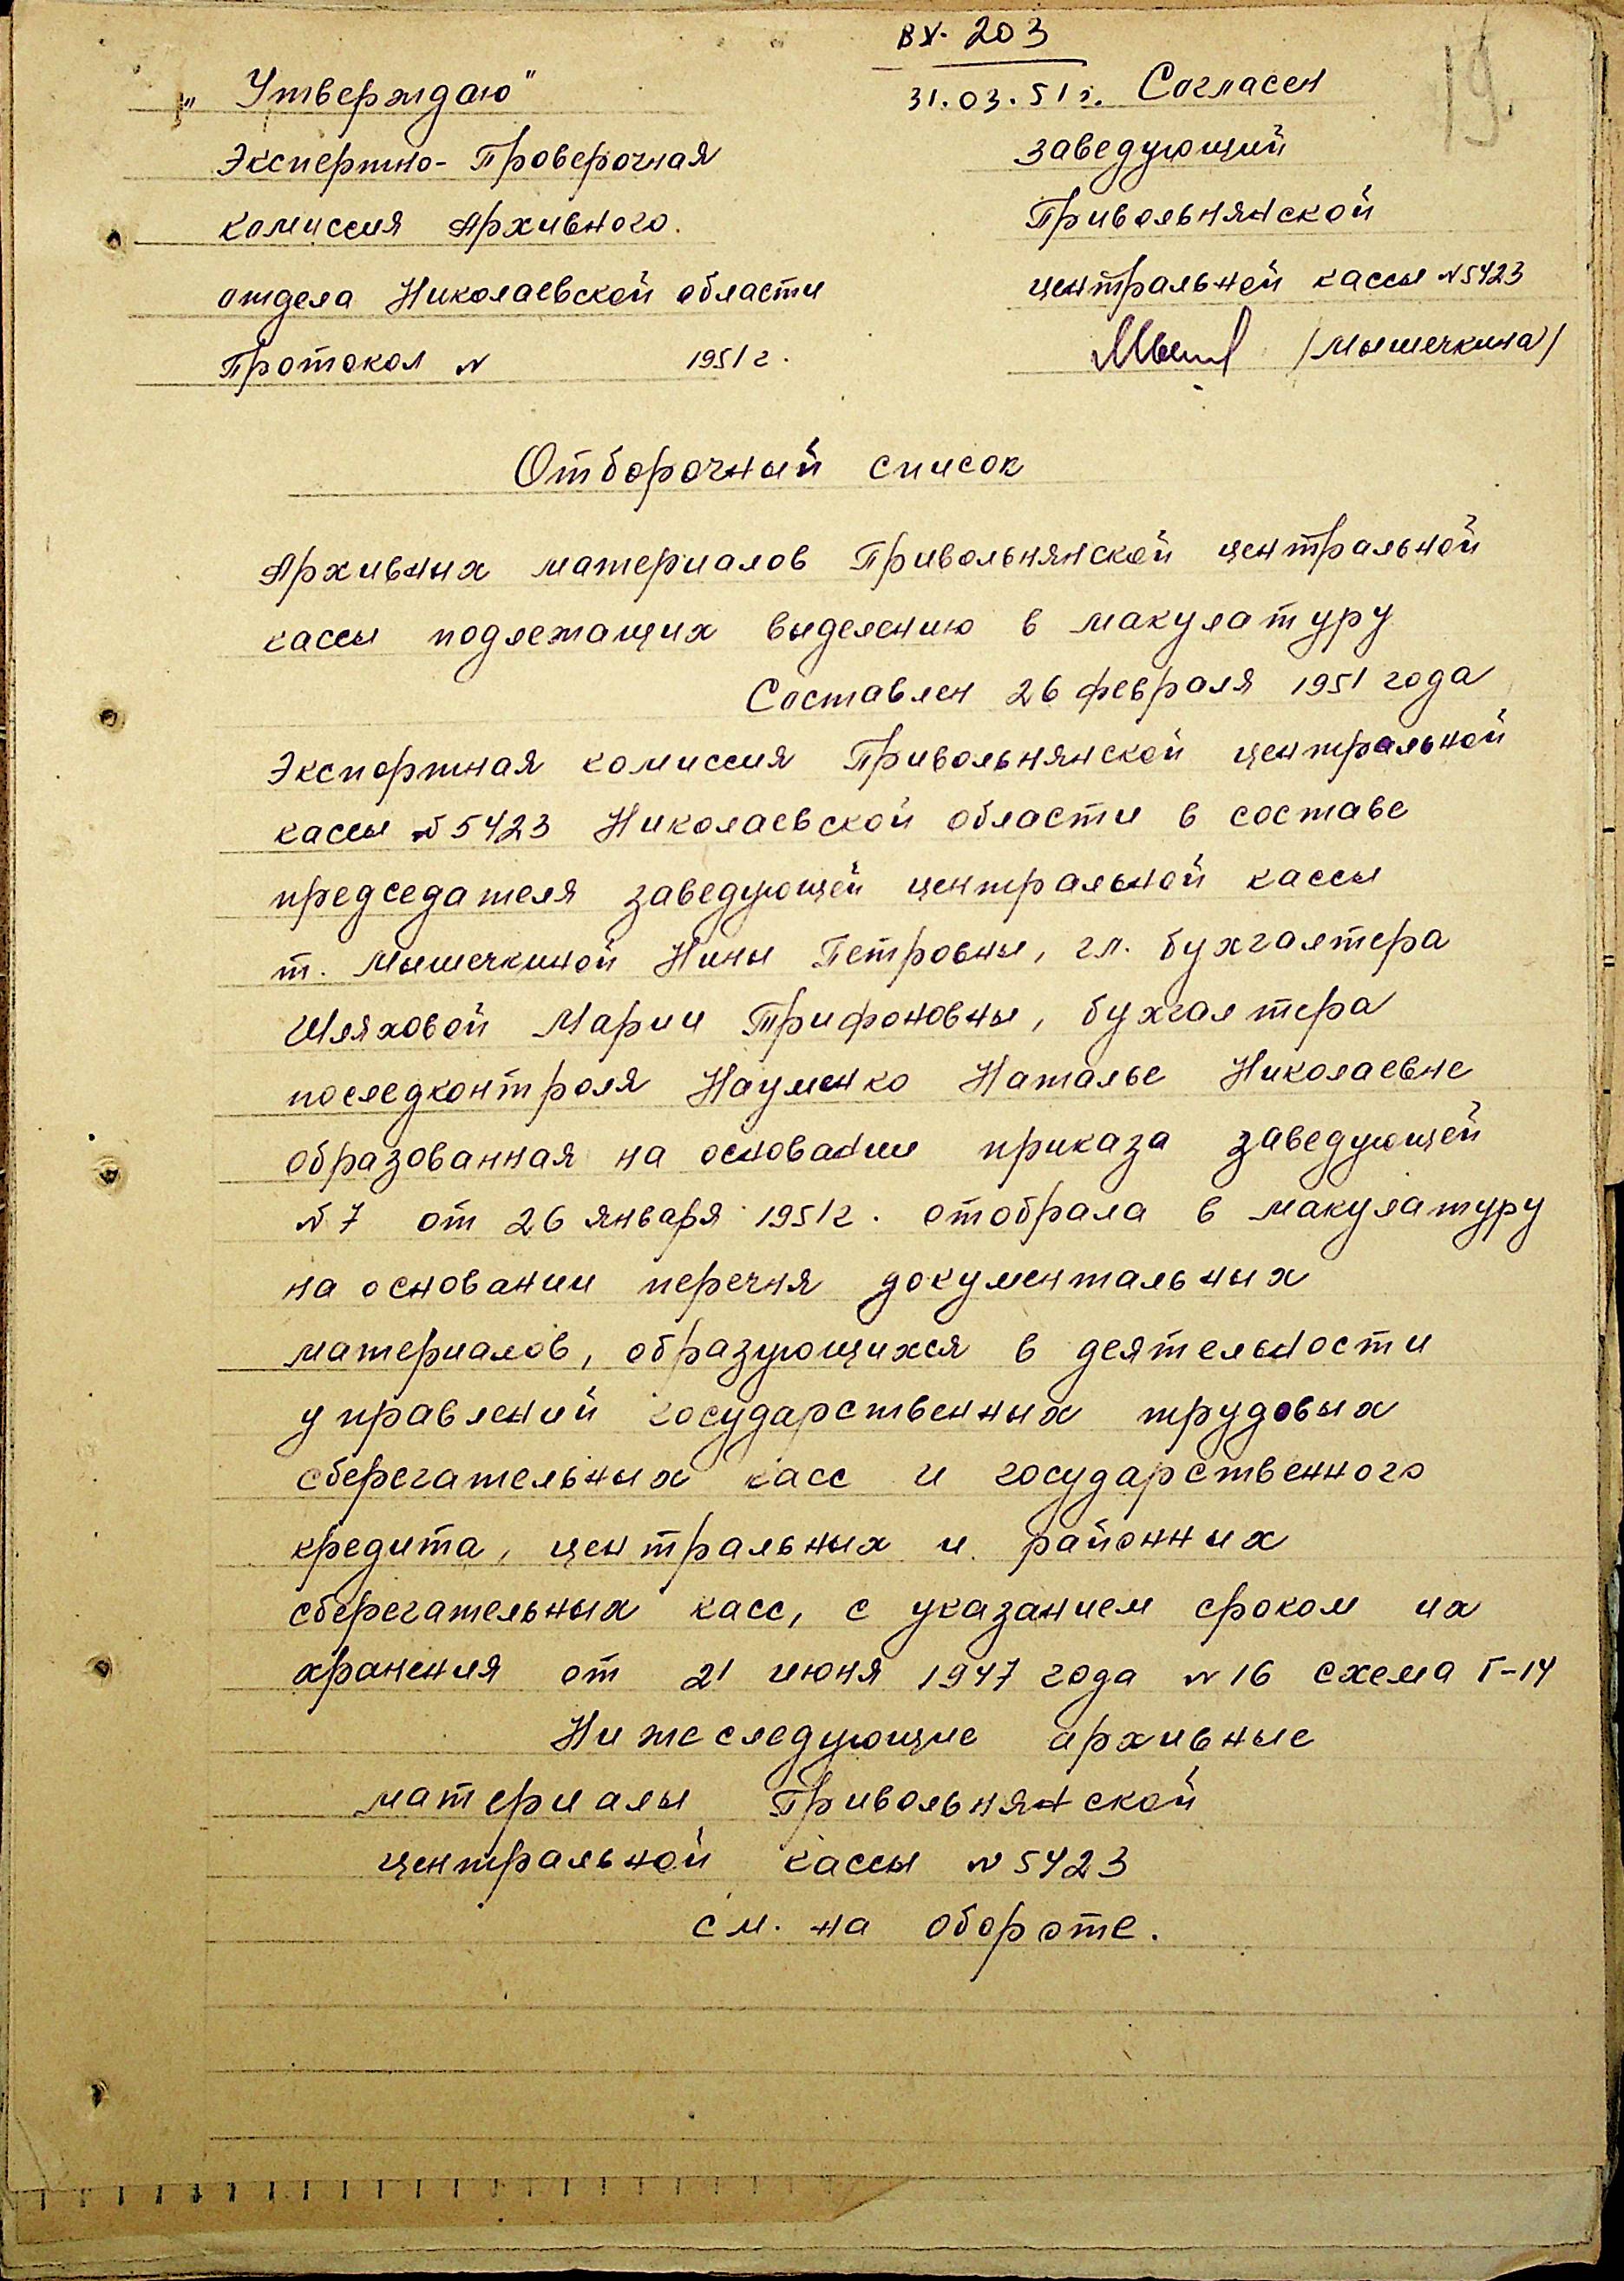 вх. 203
19.
31.03.51г.
„Утверждаю"
Экспертно-Проверочная
комиссия Архивного.
отдела Николаевской области
Протокол № 1951г.
Согласен
заведующий
Привольнянской
центральной кассы №5423
/Мышечкина/
Отборочный список
Архивных материалов Привольнянской центральной
кассы подлежащих выделению в макулатуру
Составлен 26 февраля 1951 года
Экспертная комиссия Привольнянской центральной
кассы №5423 Николаевской области в составе
председателя заведующей центральной кассы
т. Мышечкиной Нины Петровны, гл. бухгалтера
Шляховой Марии Трифоновны, бухгалтера
последконтроля Науменко Наталье Николаевне
образованная на основании приказа заведующей
№7 от 26 января 1951г. отобрала в макулатуру
на основании перечня документальных
материалов, образующихся в деятельности
управлений государственных трудовых
сберегательных касс и государственного
кредита, центральных и районных
сберегательных касс, с указанием сроком их
хранения от 21 июня 1947 года №16 схема Г-14
Нижеследующие архивные
материалы Привольнянской
центральной кассы №5423
см. на обороте.